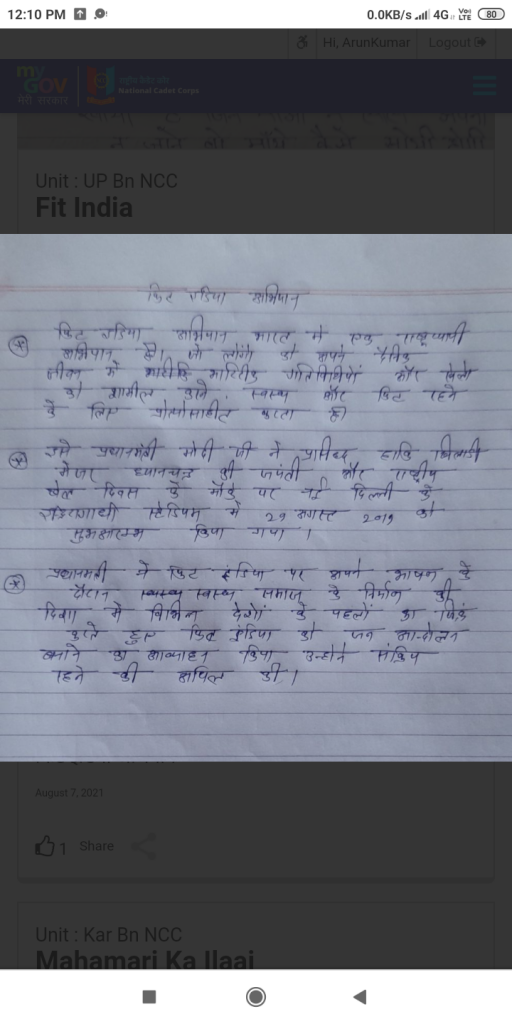 12:10 PM
0.0KB/s 4G Vo) LTE 80
Hi, ArunKumar Logout
my GOV
मेरी सरकार
राष्ट्रीय कैडेट कोर
National Cadet Corps
Unit : UP Bn NCC
Fit India
फिट इंडिया अभियान
फिट इंडिया अभियान भारत मे एक राष्ट्रव्यापी
अभियान है। जो लोगो को अपने दैनिक
जीवन में शारीरिक गतिविधियों और खेलो
को शामील करने, स्वस्थ और फिट रहने
के लिए करता है।
इसे प्रधानमंत्री मोदी जी ने हाकि खिलाडी
मेजर ध्यानचन्द्र की जयंती और राष्ट्रीय
खेल दिवस के मौके पर नई दिल्ली के
स्टेडियम में 29 अगस्त 2019 को
किया गया ।
प्रधानमंत्री ने फिट इंडिया पर अपने भाषण के
दौरान स्वस्थ समाज के निर्माण की
दिशा में देशों के पहलों का जिक्र
करते हुए फिट इंडिया को जन आन्दोलन
बनाने का किया उन्होने
रहने की अपिल की ।
August 7, 2021
1 Share
Unit : Kar Bn NCC
Mahamari Ka Ilaaj